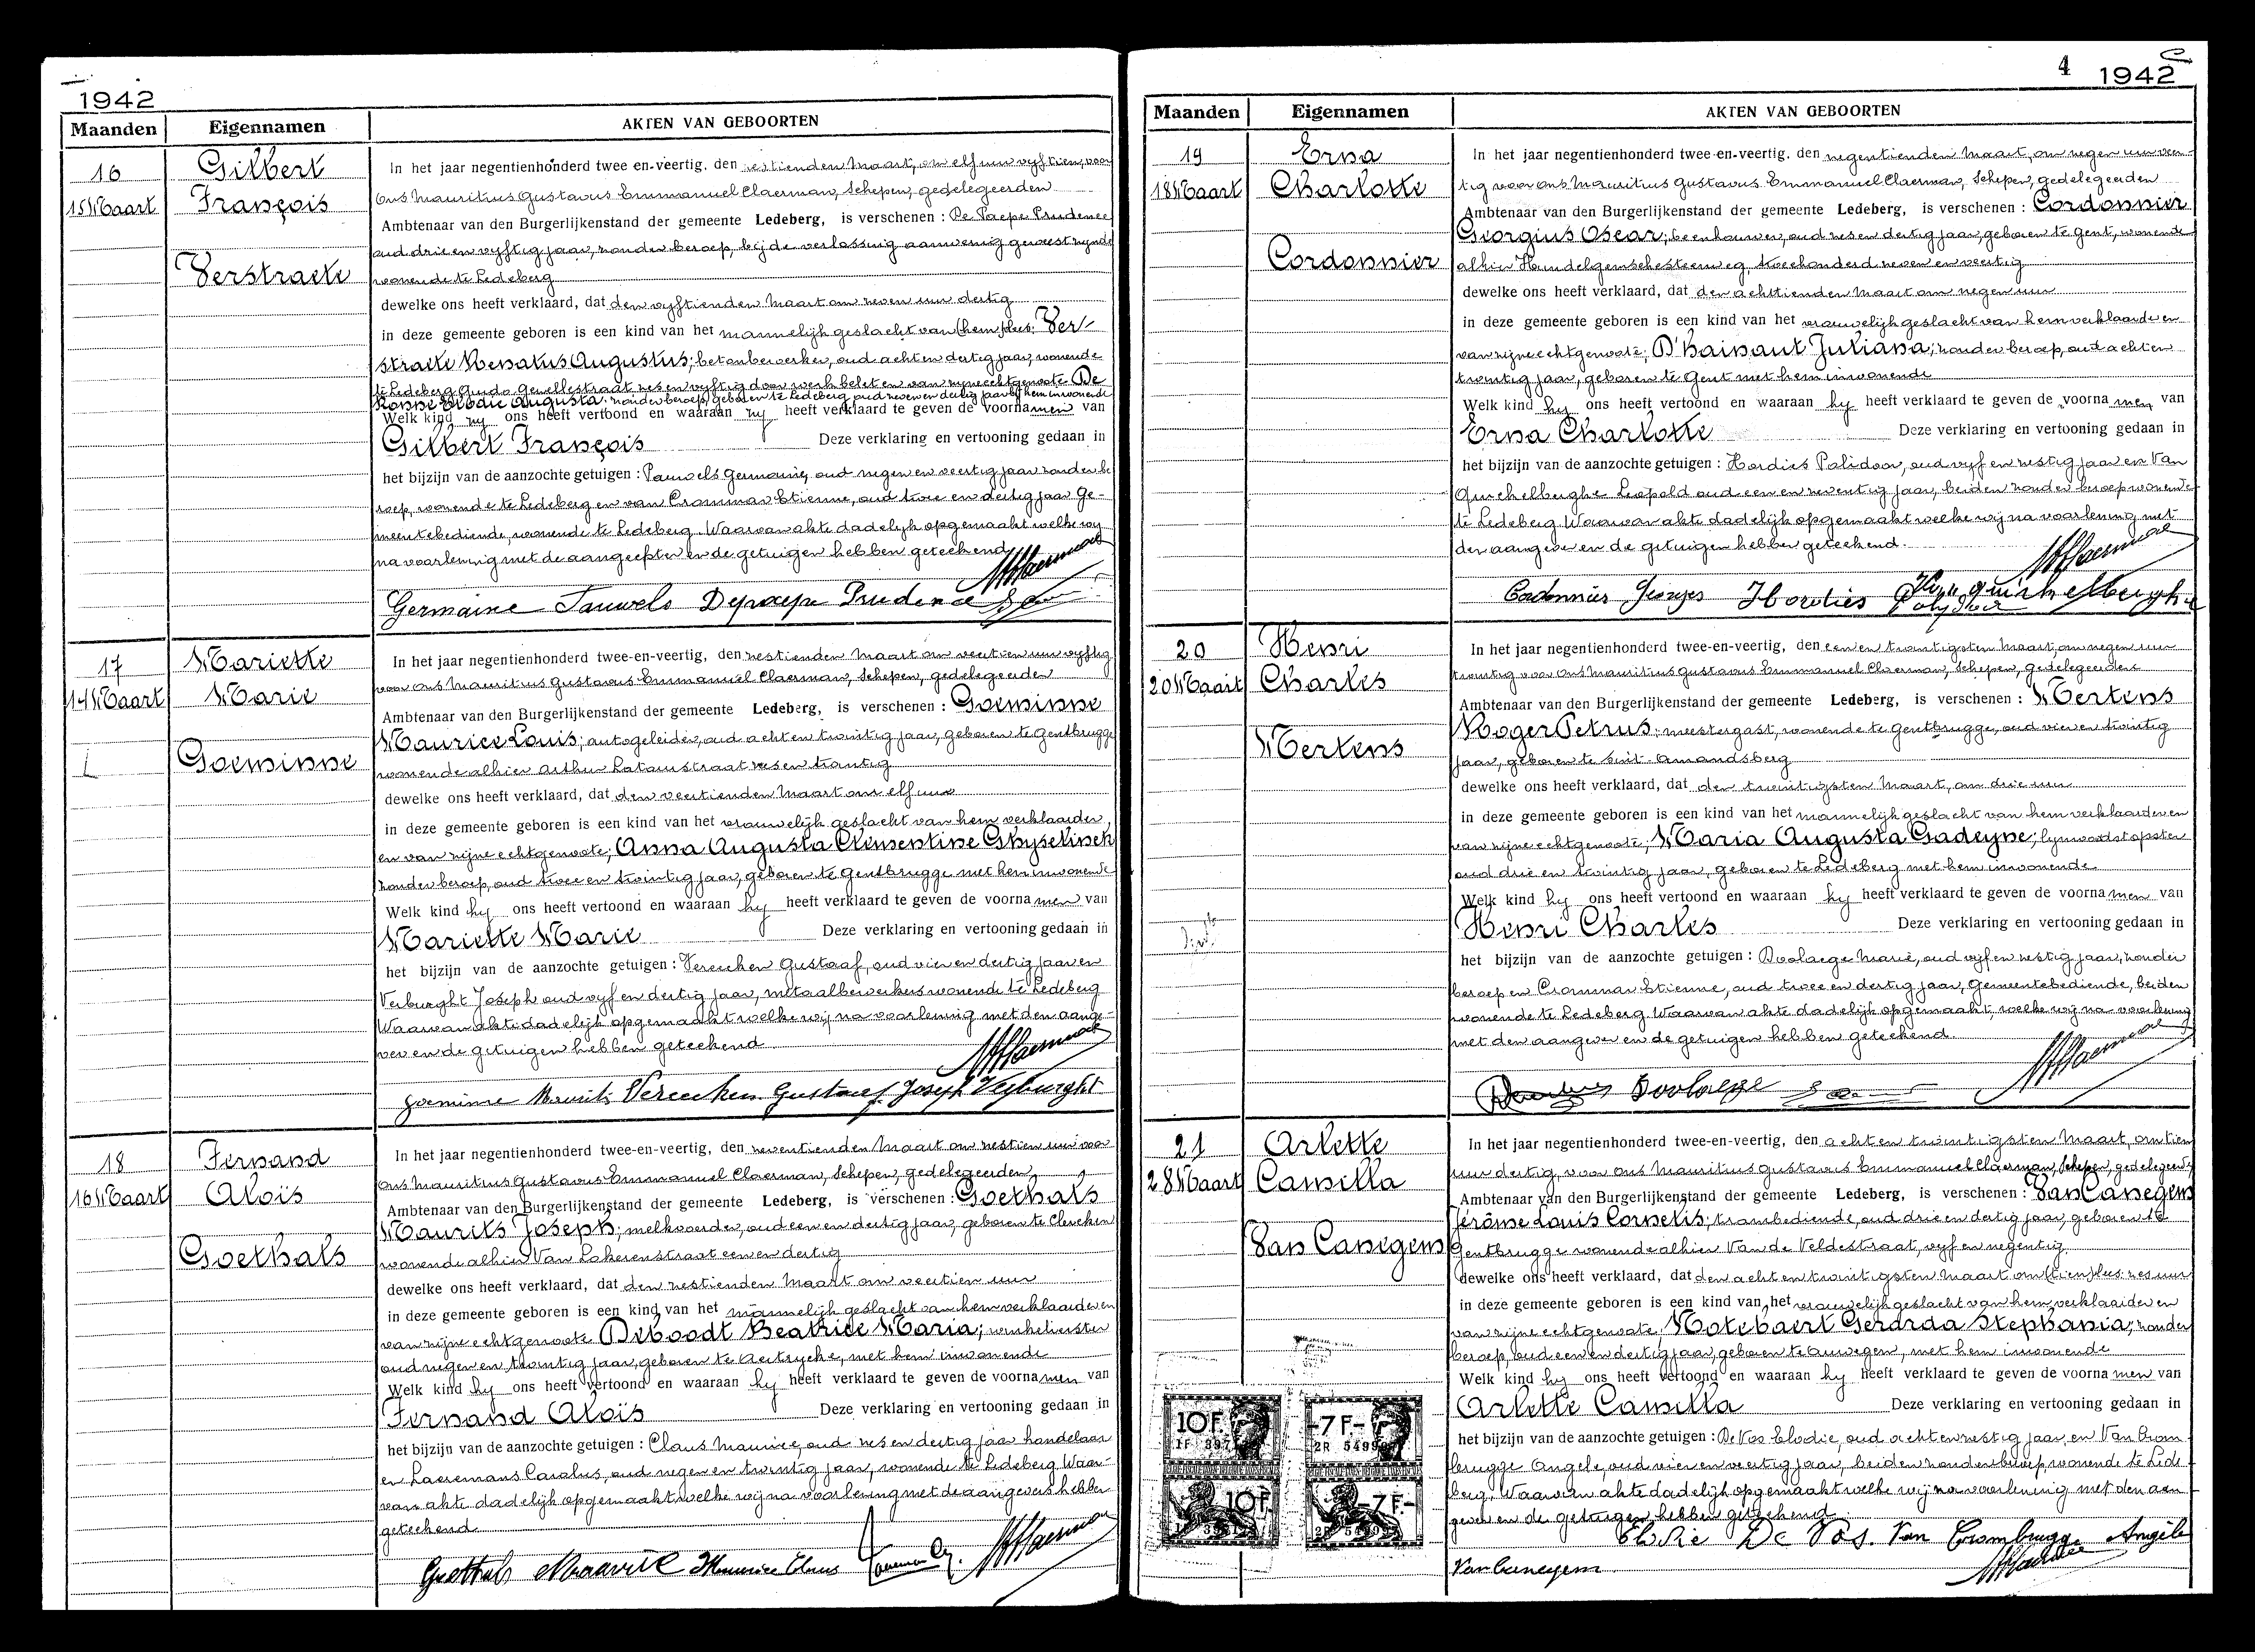 1942
Maanden Eigennamen AKTEN VAN GEBOORTEN
16
15 Maart
Gilbert
François
Verstraete
In het jaar negentienhonderd twee en-veertig. den zestienden Maart, om elf uur vyftien, voor
Ons Mauritius Gustavus Emmanuel Claerman, Schepen, gedelegeerden
Ambtenaar van den Burgerlijkenstand der gemeente Ledeberg, is verschenen : De Paepe Prudence
oud drie en vyftig jaar, zonder beroep, bij de verlossing aanwezig geweest zynde
wonende te Ledeberg
dewelke ons heeft verklaard, dat den vyftienden Maart om zeven uur dertig
in deze gemeente geboren is een kind van het mannelijk geslacht van (hem) lus: Ver-
straete Renatus Augustus; betonbewerker, oud acht en dertig jaar, wonende
te Ledeberg Guido Gezellestraat zes en vyftig door werk belet en van zijne echtgenoote De
Augusta: zonder beroep, geboren te Ledeberg oud zeven en dertig jaar bij hem inwonende
Welk kind zy ons heeft vertoond en waaraan zy heeft verklaard te geven de voornamen van
Gilbert François Deze verklaring en vertooning gedaan in
het bijzijn van de aanzochte getuigen : Pauwels Germaine, oud negen en veertig jaar zonder be
roep, wonende te Ledeberg en van Crommar Etienne, oud twee en dertig jaar Ge-
meentebediende, wonende te Ledeberg. Waarvan akte dadelijk opgemaakt welke wy
na voorlezing met de aangeefster en de getuigen hebben geteekend
Germaine Pauwels Depaepe Prudence
17
14 Maart
L
Mariette
Marie
Goeminne
In het jaar negentienhonderd twee-en-veertig, den zestienden Maart om veertien uur vyftig
voor Ons Mauritius Gustavus Emmanuel Claerman, Schepen, gedelegeerden
Ambtenaar van den Burgerlijkenstand der gemeente Ledeberg, is verschenen : Goeminne
Maurice Louis; autogeleider, oud acht en twintig jaar, geboren te Gentbrugge
wonende alhier Arthur Latourstraat zes en twintig
dewelke ons heeft verklaard, dat den veertienden Maart om elf uur
in deze gemeente geboren is een kind van het vrouwelijk geslacht van hem verklaarder
en van zijne echtgenoote; Anna Augusta Clementine Ghyselinck
zonder beroep, oud twee en twintig jaar, geboren te Gentbrugge met hem inwonende
Welk kind hy ons heeft vertoond en waaraan hy heeft verklaard te geven de voornamen van
Mariette Marie Deze verklaring en vertooning gedaan in
het bijzijn van de aanzochte getuigen : Vereecken Gustaaf, oud vier en dertig jaar en
Verburght Joseph oud vyf en dertig jaar, metaalbewerkers wonende te Ledeberg
Waarvan akte dadelijk opgemaakt welke wij na voorlezing met den aange-
ver en de getuigen hebben geteekend
Goeminne Maurits Vereecken Gustaaf Joseph Verburght
18
16 Maart
Fernand
Aloïs
Goethals
In het jaar negentienhonderd twee-en-veertig, den zeventienden Maart om zestien uur voor
Ons Mauritius Gustavus Emmanuel Claerman, Schepen, gedelegeerden
Ambtenaar van den Burgerlijkenstand der gemeente Ledeberg, is verschenen : Goethals
Maurits Joseph; melkvoerder, oud een en dertig jaar, geboren te Clercken
wonende alhier Van Lokerenstraat een en dertig
dewelke ons heeft verklaard, dat den zestienden Maart om veertien uur
in deze gemeente geboren is een kind van het mannelijk geslacht van hem verklaarder en
van zijne echtgenoote Deboodt Beatrice Maria; winkelierster
oud negen en twintig jaar, geboren te Aertrycke, met hem inwonende
Welk kind hy ons heeft vertoond en waaraan hy heeft verklaard te geven de voornamen van
Fernand Aloïs Deze verklaring en vertooning gedaan in
het bijzijn van de aanzochte getuigen : Claus Maurice, oud zes en dertig jaar handelaar
en Laeremans Carolus, oud negen en twintig jaar, wonende te Ledeberg Waar-
van akte dadelijk opgemaakt welke wij na voorlezing met de aangevers hebben
geteekend
Goethals Maurice Claus
4 1942
Maanden Eigennamen AKTEN VAN GEBOORTEN
19
18 Maart
Erna
Charlotte
Cordonnier
In het jaar negentienhonderd twee-en-veertig. den negentienden Maart, om negen uur veer-
tig voor Ons Mauritius Gustavus Emmanuel Claerman, Schepen, gedelegeerden
Ambtenaar van den Burgerlijkenstand der gemeente Ledeberg, is verschenen : Cordonnier
Georgius Oscar; beenhouwer, oud zes en dertig jaar, geboren te Gent, wonende
alhier Hundelgemschesteenweg, tweehonderd zeven en veertig
dewelke ons heeft verklaard, dat den achttienden Maart om negen uur
in deze gemeente geboren is een kind van het vrouwelijk geslacht van hem verklaarder en
van zijne echtgenoote; D'hainaut Juliana; zonder beroep, oud acht en
twintig jaar, geboren te Gent met hem inwonende
Welk kind hy ons heeft vertoond en waaraan hy heeft verklaard te geven de voornamen van
Erna Charlotte Deze verklaring en vertooning gedaan in
het bijzijn van de aanzochte getuigen : Hordies Polidoor, oud vyf en zestig jaar en Van
Quickelberghe Leopold oud een en zeventig jaar, beiden zonder beroep wonende
te Ledeberg Waarvan akte dadelijk opgemaakt welke wij na voorlezing met
den aangever en de getuigen hebben geteekend.
Cordonnier Georges Hordies
20
20 Maart
Henri
Charles
Mertens
In het jaar negentienhonderd twee-en-veertig, den een en twintigsten Maart, om negen uur
twintig voor Ons Mauritius Gustavus Emmanuel Claerman, Schepen, gedelegeerden
Ambtenaar van den Burgerlijkenstand der gemeente Ledeberg, is verschenen : Mertens
Roger Petrus; meestergast, wonende te Gentbrugge, oud vier en twintig
jaar, geboren te Sint-Amandsberg
dewelke ons heeft verklaard, dat den twintigsten Maart, om drie uur
in deze gemeente geboren is een kind van het mannelijk geslacht van hem verklaarder en
van zijne echtgenoote; Maria Augusta Gadeyne; lynwaadstopster
oud drie en twintig jaar, geboren te Ledeberg met hem inwonende
Welk kind hy ons heeft vertoond en waaraan hy heeft verklaard te geven de voornamen van
Henri Charles Deze verklaring en vertooning gedaan in
het bijzijn van de aanzochte getuigen : Boolaege Marie, oud vyf en zestig jaar, zonder
beroep en Crommar Etienne, oud twee en dertig jaar, Gemeentebediende, beiden
wonende te Ledeberg. Waarvan akte dadelijk opgemaakt, welke wij na voorlezing
met den aangever en de getuigen hebben geteekend.
Boolaege
21
28 Maart
Arlette
Camilla
Van Canegem
In het jaar negentienhonderd twee-en-veertig, den acht en twintigsten Maart, om tien
uur dertig, voor Ons Mauritius Gustavus Emmanuel Claerman, Schepen, gedelegeerde
Ambtenaar van den Burgerlijkenstand der gemeente Ledeberg, is verschenen : Van Canegem
Jérôme Louis Cornelis; trambediende, oud drie en dertig jaar, geboren te
Gentbrugge wonende alhier Van de Veldestraat, vyf en negentig
dewelke ons heeft verklaard, dat den acht en twintigsten Maart om (tien) lus: zes uur
in deze gemeente geboren is een kind van het vrouwelijk geslacht van hem verklaarder en
van zijne echtgenoote; Motebaert Gerarda Stephania; zonder
beroep, oud een en dertig jaar, geboren te Auwegem, met hem inwonende
Welk kind hy ons heeft vertoond en waaraan hy heeft verklaard te geven de voornamen van
Arlette Camilla Deze verklaring en vertooning gedaan in
het bijzijn van de aanzochte getuigen : De Vos Elodie, oud acht en zestig jaar, en Van Crom
brugge Angele, oud vier en veertig jaar, beiden zonder beroep, wonende te Lede
berg. Waarvan akte dadelijk opgemaakt welke wij na voorlezing met den aan
gever en de getuigen hebben geteekend
Elodie De Vos. Van Crombrugge Angèle
Van Canegem
10F. 7F.-
10F 7F.-